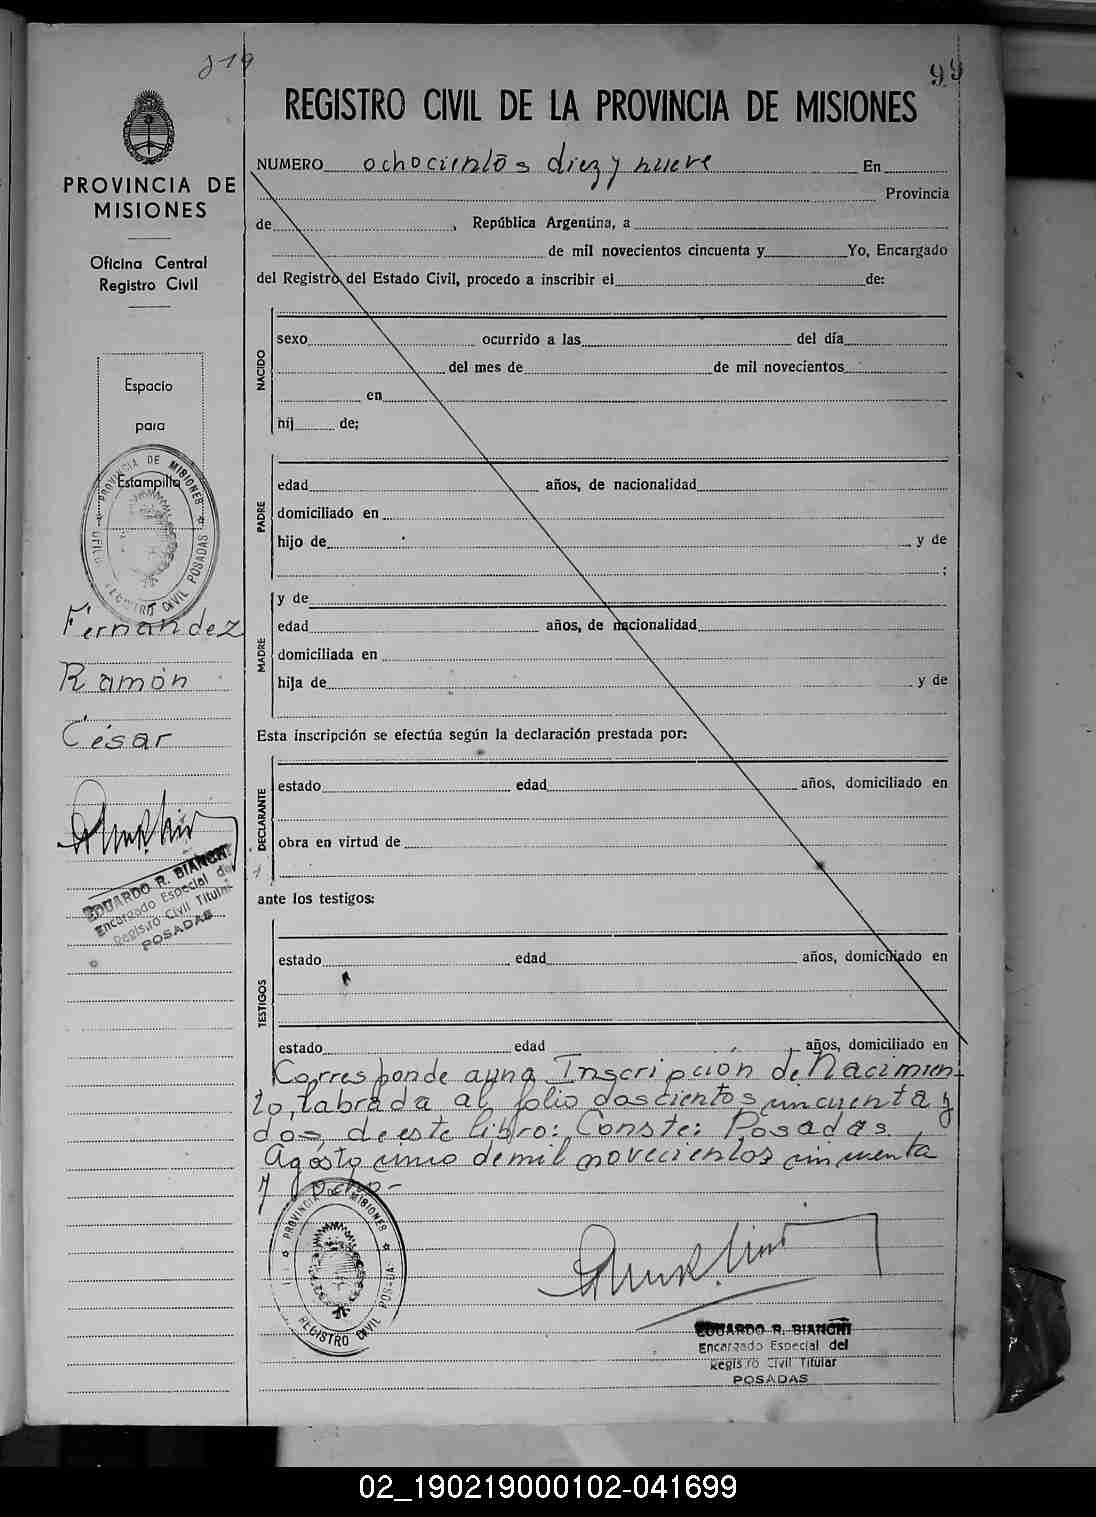 819
99
REGISTRO CIVIL DE LA PROVINCIA DE MISIONES
PROVINCIA DE
MISIONES
Oficina Central
Registro Civil
Espacio
para
Estampilla
PROVINCIA DE MISIONES
REGISTRO CIVIL POSADAS
Fernández
Ramón
César
EDUARDO R. BIANCHI
Encargado Especial del
Registro Civil Titular
POSADAS
NUMERO ochocientos diez y nueve En
Provincia
de , República Argentina, a
de mil novecientos cincuenta y Yo, Encargado
del Registro del Estado Civil, procedo a inscribir el de:
NACIDO
sexo ocurrido a las del día
del mes de de mil novecientos
en
hij de;
PADRE
edad años, de nacionalidad
domiciliado en
hijo de y de
;
MADRE
y de
edad años, de nacionalidad
domiciliada en
hija de y de
Esta inscripción se efectúa según la declaración prestada por:
DECLARANTE
estado edad años, domiciliado en
obra en virtud de
ante los testigos:
TESTIGOS
estado edad años, domiciliado en
estado edad años, domiciliado en
Corresponde auna Inscripción de Nacimien
to, labrada al folio doscientos cincuenta y
dos, de este libro: Conste: Posadas,
Agosto cinco de mil novecientos cincuenta
y ocho-
PROVINCIA DE MISIONES
REGISTRO CIVIL POSADAS
EDUARDO R. BIANCHI
Encargado Especial del
Registro Civil Titular
POSADAS
02_190219000102-041699